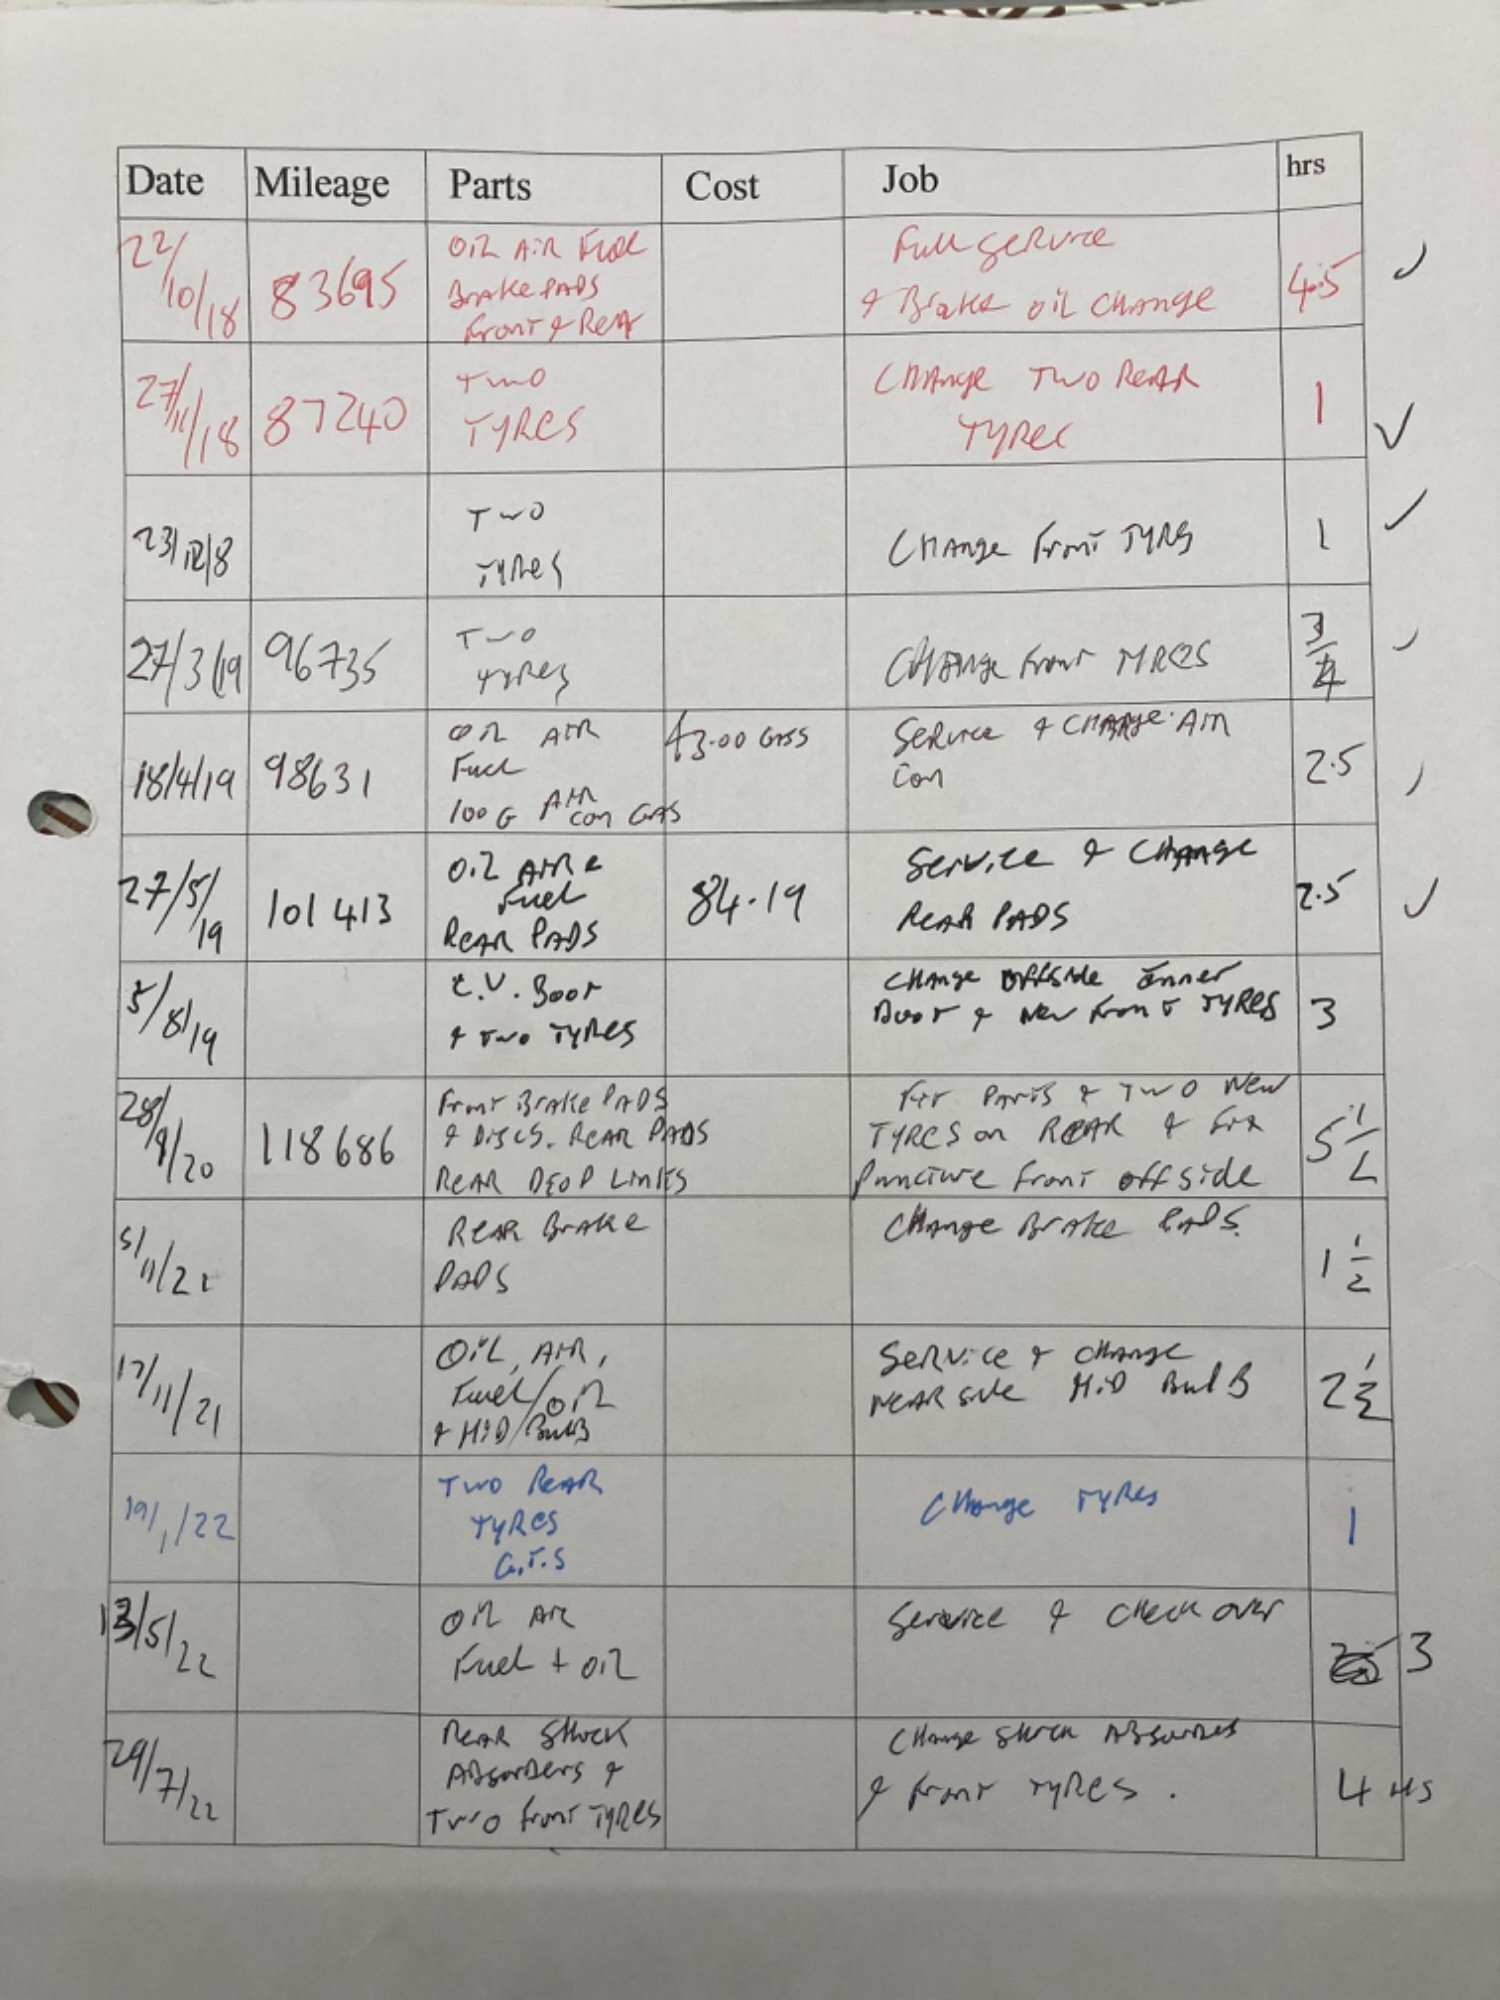 Date Mileage Parts Cost Job hrs
22/10/18 83695 OIL AIR FUEL BRAKE PADS FRONT & REAR Full SERVICE & BRAKE OIL CHANGE 4.5
27/11/18 87240 TWO TYRES CHANGE TWO REAR TYRES 1
23/12/18 TWO TYRES CHANGE FRONT TYRS 1
27/3/19 96735 TWO TYRES CHANGE FRONT TYRES 3/4
18/4/19 98631 OIL AIR Fuel 100G AIR CON GAS £3.00 GAS SERVICE & CHARGE AIR Con 2.5
27/5/19 101413 OIL AIR & Fuel REAR PADS 84.19 SERVICE & CHANGE REAR PADS 2.5
5/8/19 C.V. BOOT & TWO TYRES CHANGE OFFSIDE INNER BOOT & NEW FRONT TYRES 3
28/9/20 118686 FRONT BRAKE PADS & DISCS. REAR PADS REAR DROP LINKS FIT PARTS & TWO NEW TYRES ON REAR & FIX PUNCTURE FRONT OFFSIDE 5 1/2
5/11/21 REAR BRAKE PADS CHANGE BRAKE PADS. 1 1/2
17/11/21 OIL, AIR, Fuel/OIL & HID/BULB SERVICE & CHANGE NEARSIDE HID BULB 2 1/2
19/1/22 TWO REAR TYRES G.T.S CHANGE TYRES 1
13/5/22 OIL AIR Fuel + OIL SERVICE & CHECK OVER 3
29/7/22 REAR SHOCK ABSORBERS & TWO FRONT TYRES CHANGE SHOCK ABSORBERS & FRONT TYRES. 4 HRS